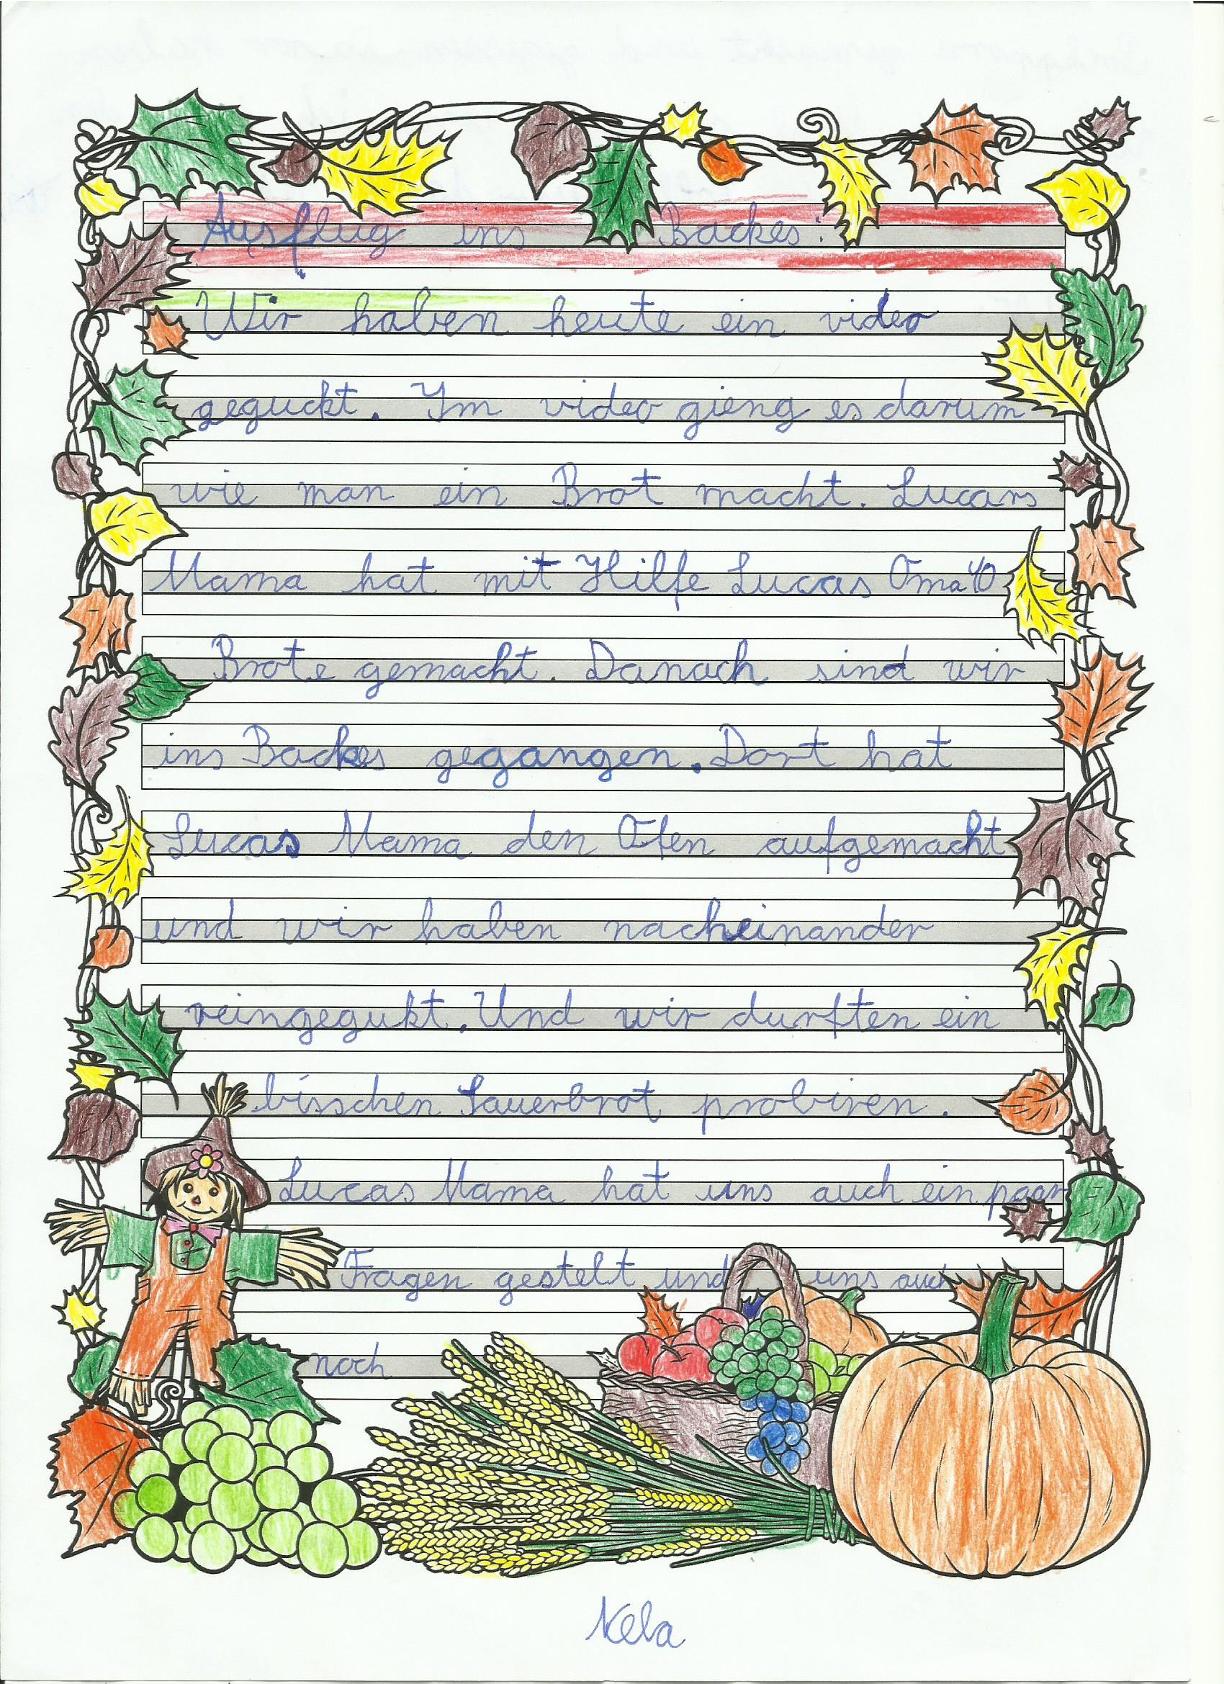 Ausflug ins Backes:
Wir haben heute ein video
geguckt. Im video gieng es darum
wie man ein Brot macht. Lucars
Mama hat mit Hilfe Lucas Oma 40
Brote gemacht. Danach sind wir
ins Backes gegangen. Dort hat
Lucas Mama den Ofen aufgemacht
und wir haben nacheinander
reingegukt. Und wir durften ein
bisschen Sauerbrot probiren.
Lucas Mama hat uns auch ein paar
Fragen gestelt und uns auch
noch
Nela